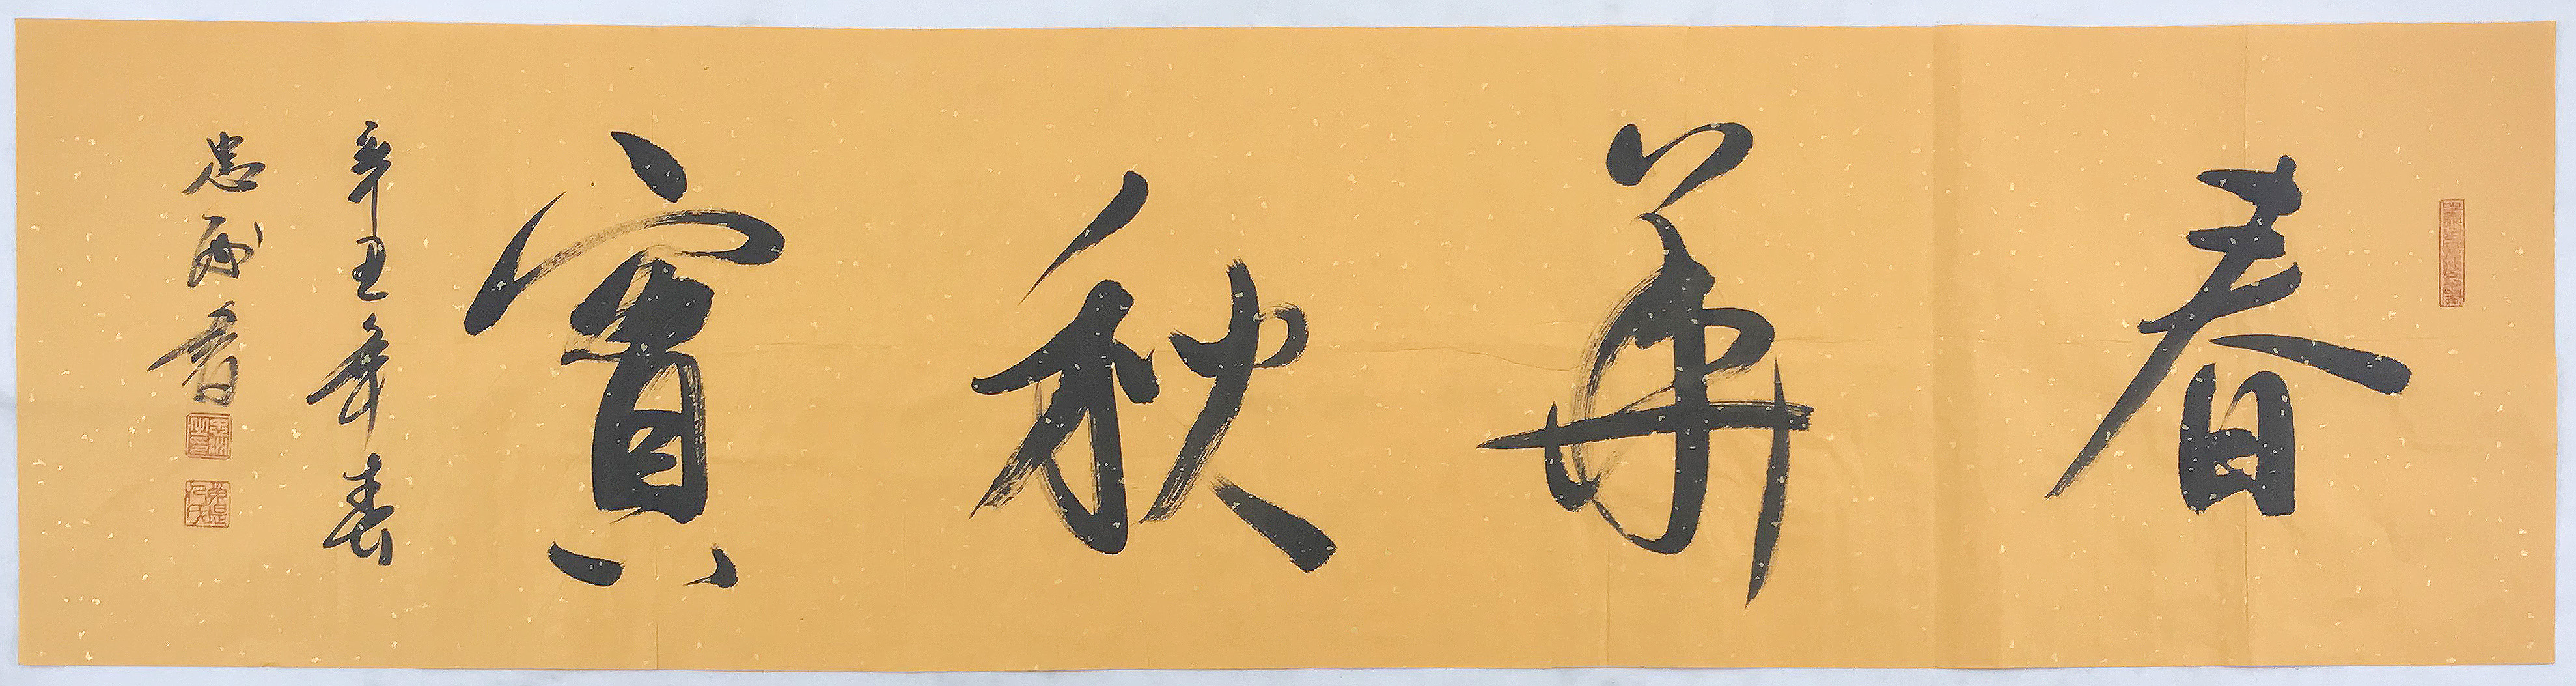 春華秋實
辛丑年春
忠形書